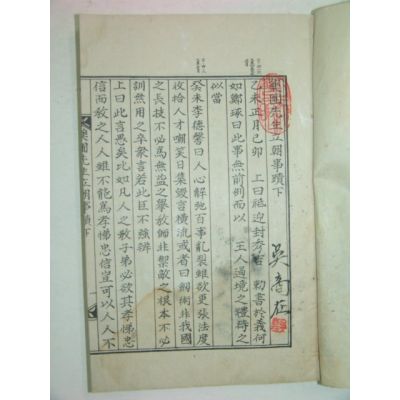 樂圃先生立朝事蹟下
乙未正月己卯 上曰祗迎封秀吉 勅書於義何
如鄭琢曰此事無前例而以 王人過境之禮待之
似當
癸未李德馨曰人心解弛百事亂裂雖欲更張法度
收拾人才嘲笑日集謾言橫流或者曰劒術非我國
之長技不必爲無益之擧敎師非禦敵之根本不必
訓無用之卒衆言若此臣不強辨
上曰此言惡矣比如凡人之敎子弟必欲其孝悌忠
信而敎之人人雖不能爲孝悌忠信豈可以人人不
先生立朝事蹟下